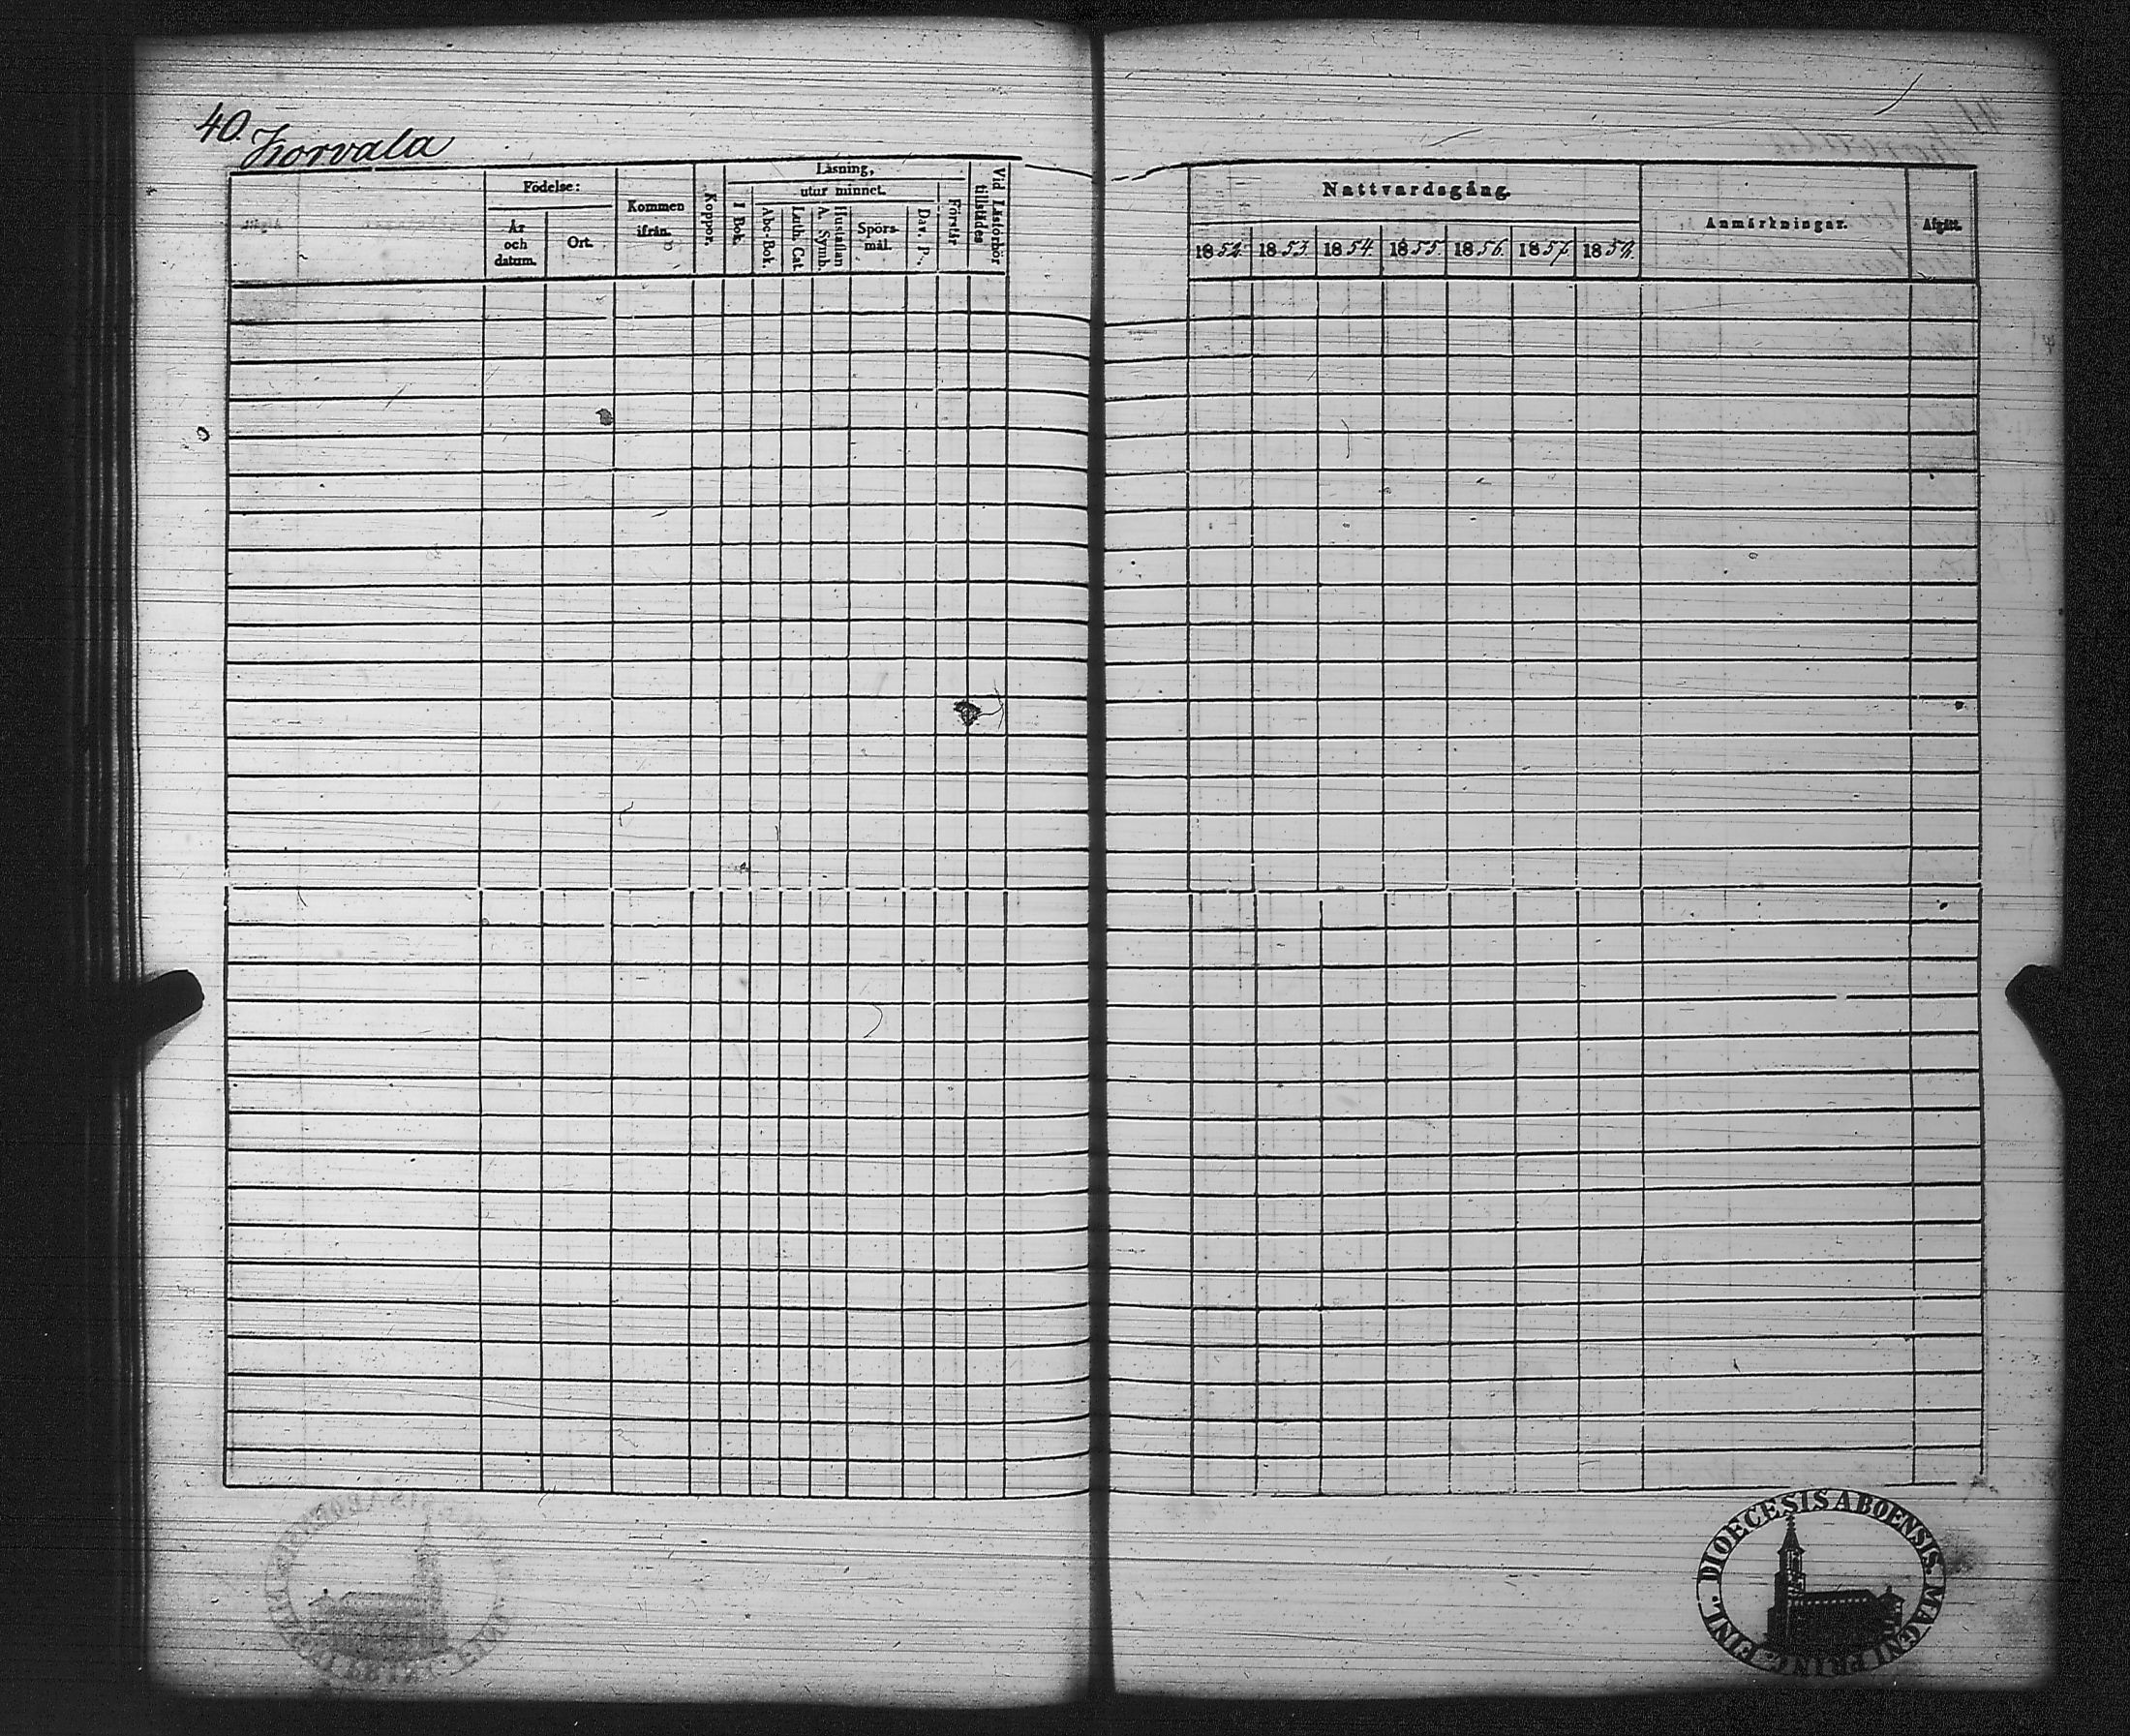 40. Korvala
Födelse:
År och datum.
Ort.
Kommen ifrån.
Koppor.
Läsning,
utur minnet.
I Bok.
Abc-Bok.
Luth. Cat.
A. Symb.
Hustaflan
Spörs-mål.
Dav. P.
Förstår
Vid Läsförhör tillstädes
Nattvardsgång.
1852. 1853. 1854. 1855. 1856. 1857. 1858.
Anmärkningar.
Afgått.
DIOECESIS ABOENSIS. MAGNI PRINC. FINL.